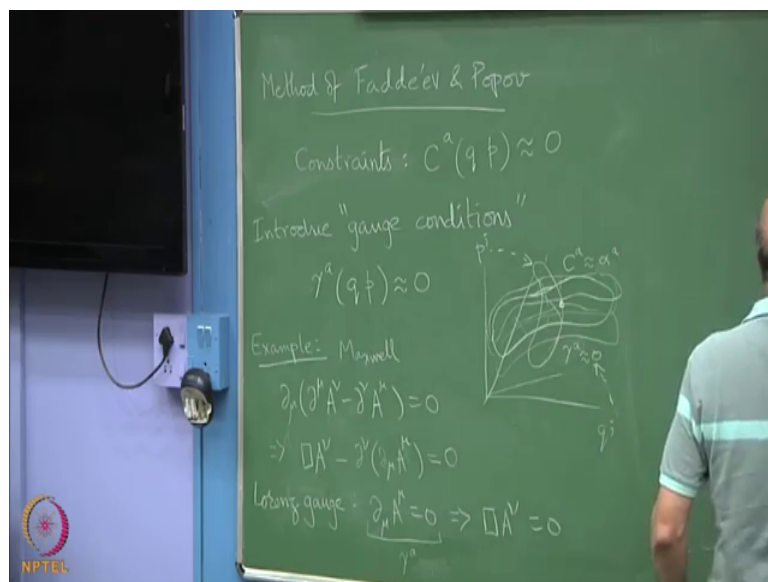 Method of Faddeév & Popov
Constraints : Cᵃ(q p) ≈ 0
Introduce "gauge conditions"
γᵃ(q p) ≈ 0
pⁱ
Cᵃ ≈ αᵃ
γᵃ ≈ 0
qʲ
Example: Maxwell
∂_μ(∂^μ A^ν - ∂^ν A^μ) = 0
⇒ □A^ν - ∂^ν(∂_μ A^μ) = 0
Lorenz gauge : ∂_μ A^μ = 0 ⇒ □A^ν = 0
γᵃ
NPTEL